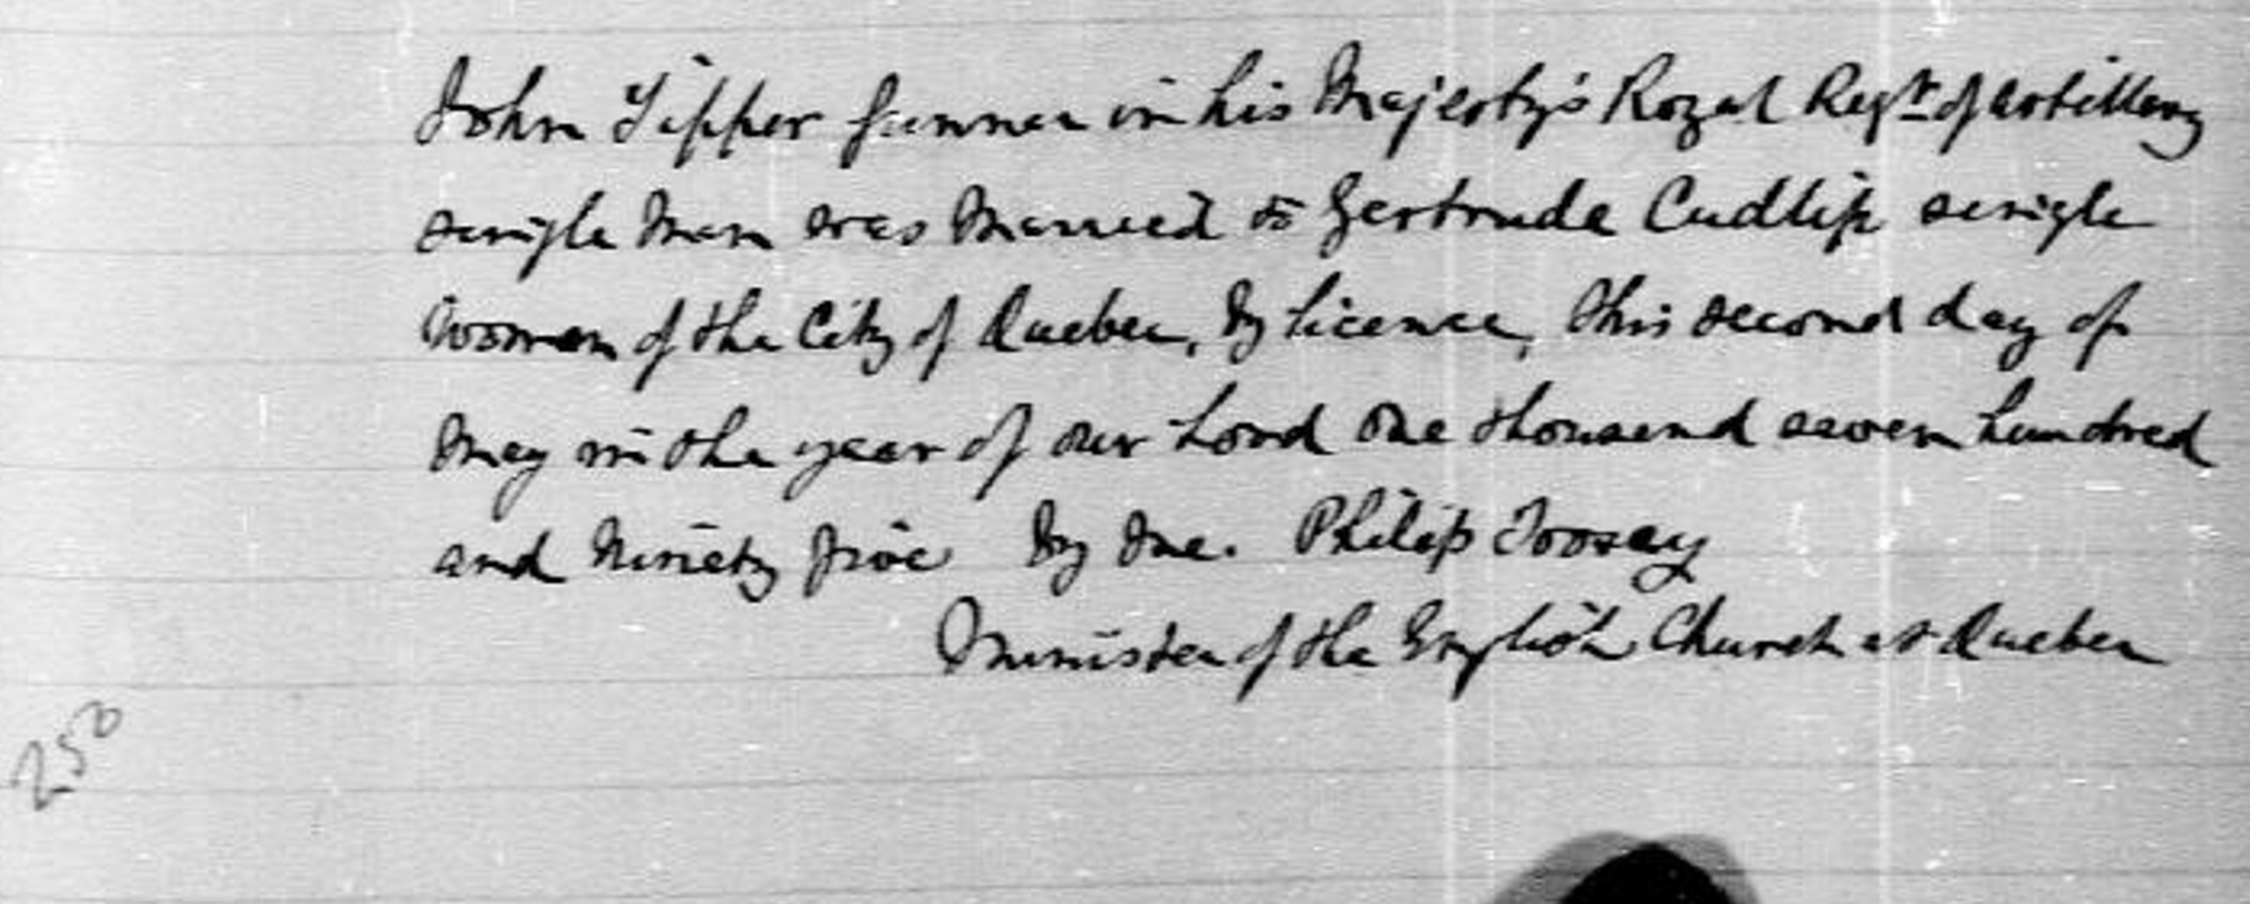 John Tipper Gunner in his Majesty's Royal Regt of Artillery
single Man was Married to Gertrude Cudlip single
Woman of the City of Quebec, by licence, this second day of
May in the year of our Lord one thousand seven hundred
and Ninety five By me. Philip Toosey
Minister of the English Church at Quebec
250